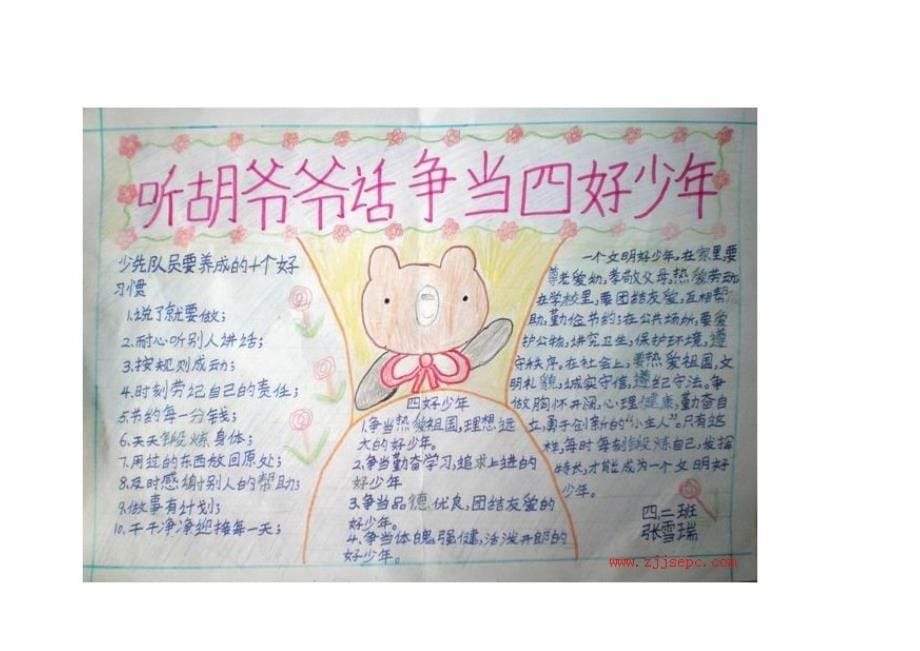 听胡爷爷话争当四好少年
少先队员要养成的十个好
习惯
1.说了就要做;
2.耐心听别人讲话;
3.按规则成动;
4.时刻劳记自己的责任;
5.节约每一分钱;
6.天天锻炼身体;
7.用过的东西放回原处;
8.及时感谢别人的帮助;
9.做事有计划;
10.干干净净迎接每一天;
四好少年
1.争当热爱祖国,理想远
大的好少年。
2.争当勤奋学习,追求上进的
好少年
3.争当品德优良,团结友爱的
好少年。
4.争当体魄强健,活泼开朗的
好少年。
一个文明好少年,在家里,要
尊老爱幼,孝敬父母,热爱劳动
在学校里,要团结友爱,互相帮
助,勤俭节约;在公共场所,要爱
护公物,讲究卫生,保护环境,遵
守秩序,在社会上,要热爱祖国,文
明礼貌,诚实守信,遵纪守法。争
做胸怀开阔,心理健康,勤奋自
立,勇于创新的“小主人”。只有这
样,每时每刻锻炼自己,发挥
特长,才能成为一个文明好
少年。
四.二班
张雪瑞
www.zjjsepc.com